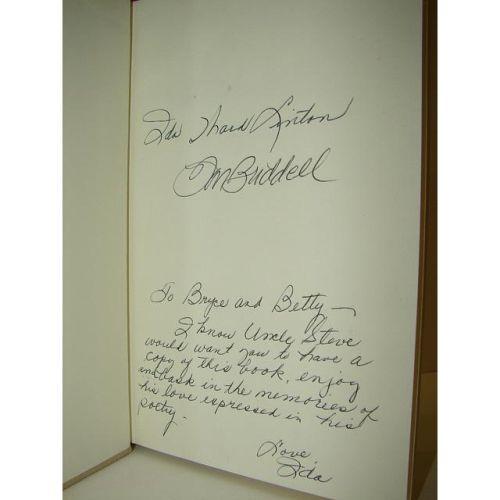 Ida Ward Linton
Tom Briddell
To Bryce and Betty —
I know Uncle Steve
would want you to have a
copy of this book, enjoy
and bask in the memories of
his love expressed in his
poetry.
Love,
Ida